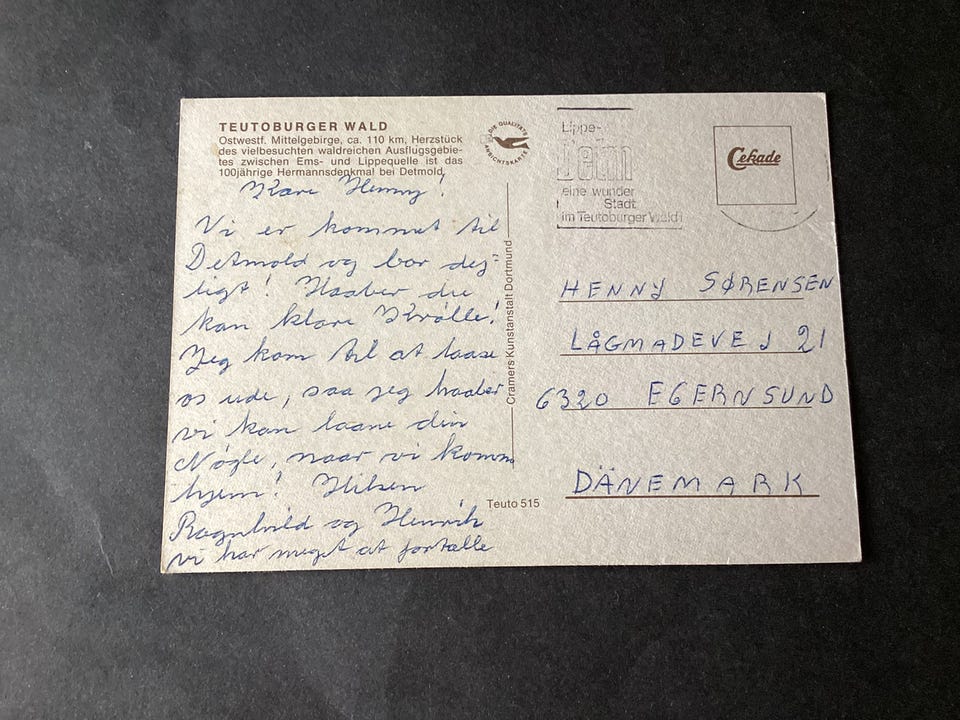 TEUTOBURGER WALD
Ostwestf. Mittelgebirge, ca. 110 km, Herzstück
des vielbesuchten waldreichen Ausflugsgebie-
tes zwischen Ems- und Lippequelle ist das
100jährige Hermannsdenkmal bei Detmold.
DIE QUALITÄTS
ANSICHTSKARTE
Kære Henny!
Vi er kommet til
Detmold og bor dej-
ligt! Haaber du
kan klare Krølle!
Jeg kom til at laase
os ude, saa jeg haaber
vi kan laane din
Nøgle, naar vi komm
hjem! Hilsen
Ragnhild og Henrik
vi har meget at fortælle
Cramers Kunstanstalt Dortmund
Teuto 515
Lippe-
Detm
eine wunder
Stadt
im Teutoburger Wald
Cekade
HENNY SØRENSEN
LÅGMADEVEJ 21
6320 EGERNSUND
DÄNEMARK